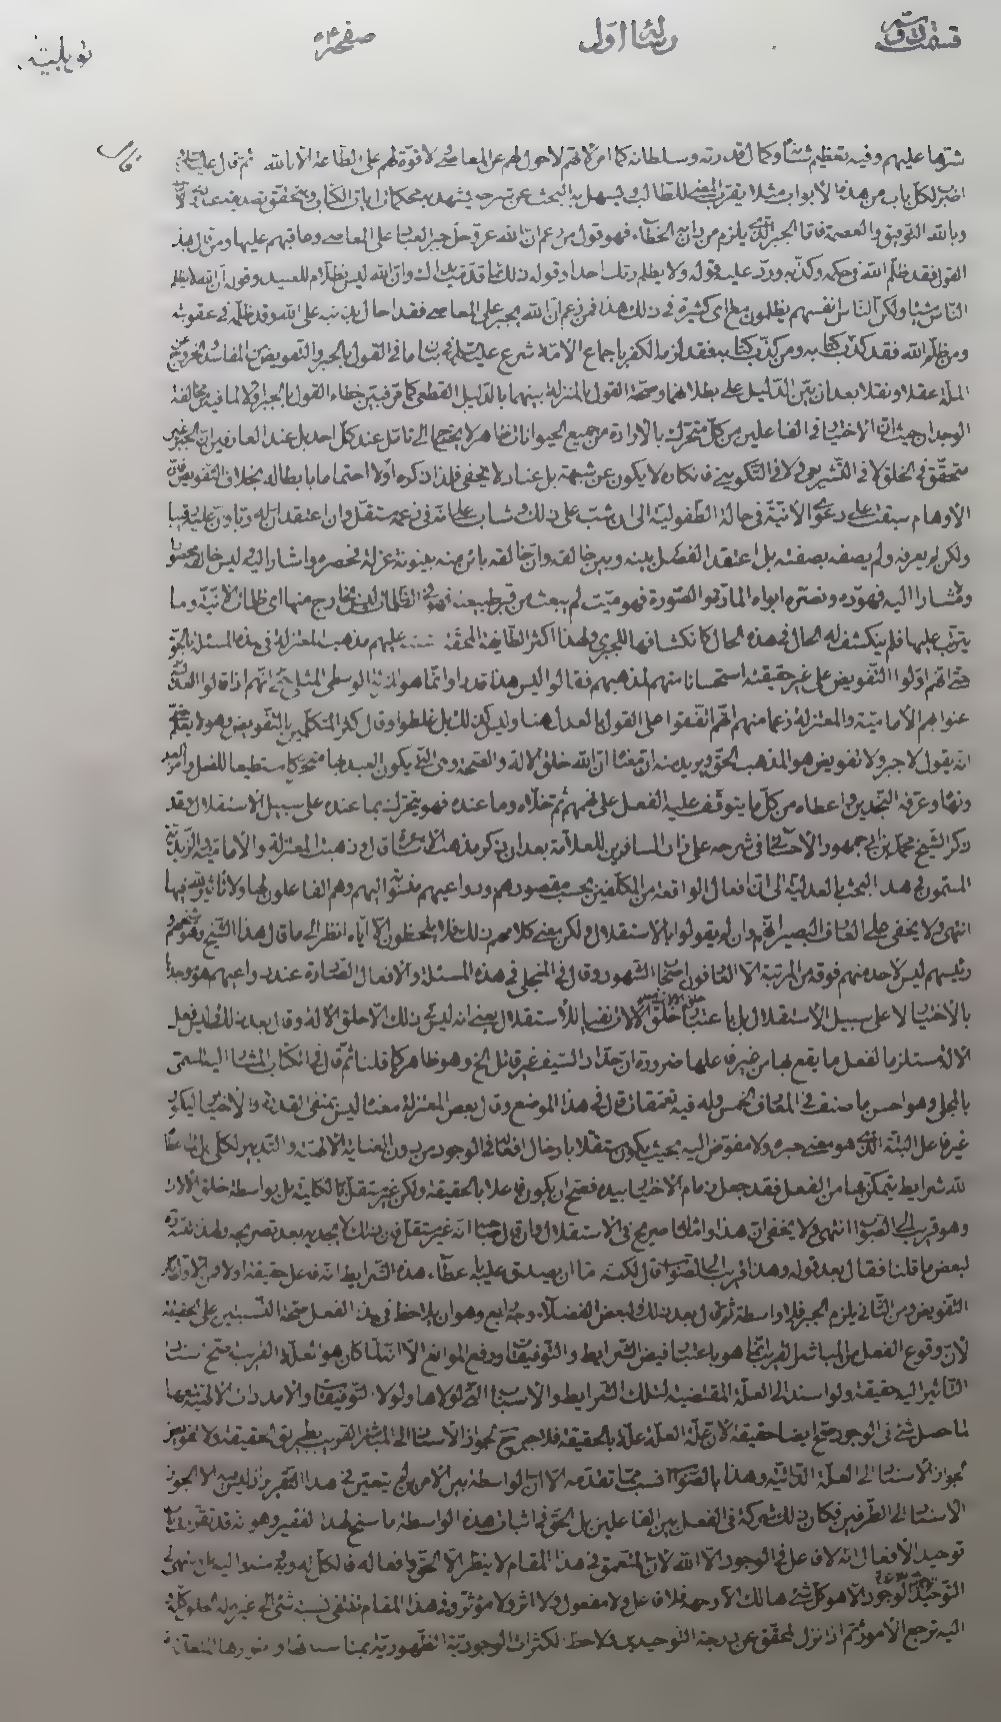 رسالۀ اوّل
صفحه
شرّها عليهم وفيه تعظيم شأنه وكمال قدرته وسلطانه كما امر لانّهم لا حول لهم عن المعاصى لا قوّة لهم على الطّاعة الّا بالله ثم قال
اضرب لكلّ باب من هذه الأبواب مثلا يقرّب المعنى للطّالب ويسهل له البحث عن شرحه يشهد به محكمات ايات الكتاب وتحقّق تصديقه عند
وبالله التّوفيق والعصمة فامّا الجبر الّذى يلزم من دان به الخطاء فهو قول من زعم انّ الله عزّ وجلّ جبر العباد على المعاصى وعاقبهم عليها ومن قال بهذا
القول فقد ظلّم الله فى حكمه وكذّبه وردّ عليه قوله ولا يظلم ربّك احدا وقوله ذلك بما قدّمت يداك وانّ الله ليس بظلّام للعبيد وقوله انّ الله لا يظلم
النّاس شيئا ولكنّ النّاس انفسهم يظلمون مع اى كثيرة فى ذلك هذا فمن زعم انّ الله يجبر على المعاصى فقد احال بذنبه على الله وقد ظلّمه فى عقوبته
ومن ظلّم الله فقد كذّب كتابه ومن كذّب كتابه فقد لزمه الكفر باجماع الأمّة شرع عليه السلام فى بيان ما فى القول بالجبر والتّفويض من المفاسد
الملّة عقلا ونقلا بعد ان بيّن الدّليل على بطلانهما وصحّة القول بالمنزلة بينهما بالدّليل القطعى كما مرّ فبيّن خطاء القول بالجبر اوّلا لما فيه من مخالفة
الوجدان حيث انّ الاختيار فى الفاعلين من كلّ متحرّك بالارادة من جميع الحيوانات ظاهر لا يحتاج الى تأمّل عند كلّ احد بل عند العارفين انّ الجبر غير
متحقّق فى الخلق لا فى التّشريعى ولا فى التّكوينى فانكاره لا يكون عن شبهة بل عناد لا يخفى فلذا ذكره اوّلا اهتماما بابطاله بخلاف التّفويض فانّ
الأوهام سبقت على دعوى الأنيّة فى حالة الطّفوليّة الى ان شبّ على ذلك وشاب على انّه فى زعمه مستقلّ وان اعتقد انّ له ربّا وانّ عليه رقيبا
ولكن لم يعرفه ولم يصفه بصفته بل اعتقد الفصل بينه وبين خالقه وانّ خالقه بائن منه بينونة عزلة
ومشارا اليه فهوّده ونصّره ابواه المادّة والصّورة فهو ميّت لم يبعث من قبر طبيعته فهو فى الظّلمات ليس بخارج منها اى ظلمات الأنيّة وما
يترتّب عليها فلم ينكشف له الحال فى هذه الحال كانكشافها للجبرى ولهذا اكثر الطّايفة المحقّة عليهم مذهب المعتزلة فى هذه المسئلة بالحقّ
حتّى انّهم اوّلوا التّفويض على غير حقيقته استحسانا منهم لمذهبهم فقالوا ليس هذا قدرا وانّما هو المنزلة الوسطى المثلى حتّى انّهم اذا قالوا العدليّة
عنوا بهم الأماميّة والمعتزلة زعما منهم انّهم اتّفقوا على القول بالعدل هنا وليس كذلك بل غلطوا وقال كثير المتكلّمين بالتّفويض وهو لا يعلم
انّه يقول لا جبر ولا تفويض هو المذهب الحقّ ويريد منه انّ معناه انّ الله خلق الالة والصّحة وهى الّتى يكون العبد بها متحرّكا مستطيعا للفعل وامر
ونهاه وعرّفه النّجدين واعطاه من كلّ ما يتوقّف عليه الفعل على فهمهم ثمّ خلّاه وما عنده فهو يتحرّك بما عنده على سبيل الاستقلال وقد
ذكر الشّيخ محمّد بن ابى جمهور الأحسائى فى شرحه على زاد المسافرين للعلّامة بعد ان ذكر مذهب الأشاعرة قال وذهبت المعتزلة والأماميّة والزّيديّة
المسمّون فى هذا البحث بالعدليّة الى انّ افعال الواقعة من المكلّفين بحسب مقصودهم ودواعيهم منسوبة اليهم وهم الفاعلون لها ولا تاثير لله فيها
انتهى ولا يخفى على العارف البصير انّهم وان لم يقولوا بالاستقلال ولكن معنى كلامهم ذلك فلا يلحظون الّا ايّاه انظر الى ما قال هذا الشّيخ وهو شيخهم و
رئيسهم ليس لأحد منهم فوقه من المرتبة الّا العارفون اصحاب الشّهود وقال فى المنجلى فى هذه المسئلة والافعال الصّادرة عند دواعيهم هو موجدها
بالأختيار لا على سبيل الأستقلال بل باعتبار خلق الالات نفيا للأستقلال يعنى انّه ليس فى ذلك الّا خلق الالة وقال بعد ذلك وليس فعل
الالة مستلزما لفعل ما يقع بها من غير فاعلها ضرورة انّ حدّاد السّيف غير قاتل الخ وهو ظاهر كما قلنا ثمّ قال فى الكتاب المشار اليه المسمّى
بالمجلى وهو احسن ما صنّف فى المعارف الخمس وله فيه تعمّقات قال فى هذا الموضع وقال بعض المعتزلة معناه ليس بمنفى القدرة والاختيار ليكون
غير فاعل البتّة الّذى هو معنى جبره ولا مفوّض اليه بحيث يكون مستقلّا بادخال افعاله فى الوجود من دون العناية الالهيّة والتّدبير الكلّى بل لمّا
لله شرايط يتمكّن بها من الفعل فقد جعل زمام الأختيار بيده فصحّ ان يكون فاعلا بالحقيقة ولكن غير مستقلّ بالكليّة بل بواسطة خلق الالات
وهو قريب الى الصّواب انتهى ولا يخفى انّ هذا وامثاله صريح فى الاستقلال وان قال صاحبه انّه غير مستقلّ فانّ ذلك لا يجديه بعد تصريحه ولهذا
لبعض ما قلنا فقال بعد قوله وهذا قريب الى الصّواب قال لكنّه امّا ان يصدق عليه باعطاء هذه الشّرايط انّه فاعل حقيقة اولا فمن الاوّل
التّفويض ومن الثّانى يلزم الجبر فلا واسطة ثمّ قال بعد ذلك ولبعض الفضلاء وجه رابع وهو ان يلاحظ فى هذا الفعل صحّة النّسبتين على الحقيقة
لأنّ وقوع الفعل من المباشر القريب انّما هو باعتبار فيض الشّرايط والتّوفيقات ودفع الموانع الّا انّه لمّا كان هو العلّة القريبة صحّ نسبة
التّاثير اليه حقيقة ولو اسند الى العلّة المقتضية لتلك الشّرايط والأسباب الّتى لولاها ولولا التّوفيقات والامدادات الالهيّة
لما حصل شئ فى الوجود صحّ ايضا حقيقة لأنّ علّة العلّة علّة بالحقيقة فلا جبر مع جواز الأسناد الى المباشر القريب بطريق الحقيقة ولا تفويض
لجواز الأسناد الى العلّة الذّاتيّة وهذا بالصّواب انسب ممّا تقدّمه الّا انّ الواسطة بين الامرين لم يتعيّن فى هذا التّقرير اذ ليس الّا الجواز
الاسناد الى الطّرفين فكان ذلك شركة فى الفعل بين الفاعلين بل الحقّ فى اثبات هذه الواسطة ما سنح لهذا الفقير وهو انّه قد تقرّر فى
توحيد الأفعال انّه لا فاعل فى الوجود الّا الله لأنّ المتعمّق فى هذا المقام لا ينظر الّا الحقّ وافعاله فالكلّ له وبه ومنه واليه
التّوحيد الوجود الّا هو كلّ شئ هالك الّا وجهه فلا فاعل ولا مفعول ولا اثر ولا مؤثّر وفى هذا المقام تنتفى نسبة شئ الى غيره
اليه ترجع الأمور ثمّ اذا نزل المحقّق عن درجة التّوحيدين ولاحظ الكثرات الوجوديّة الظّهوريّة